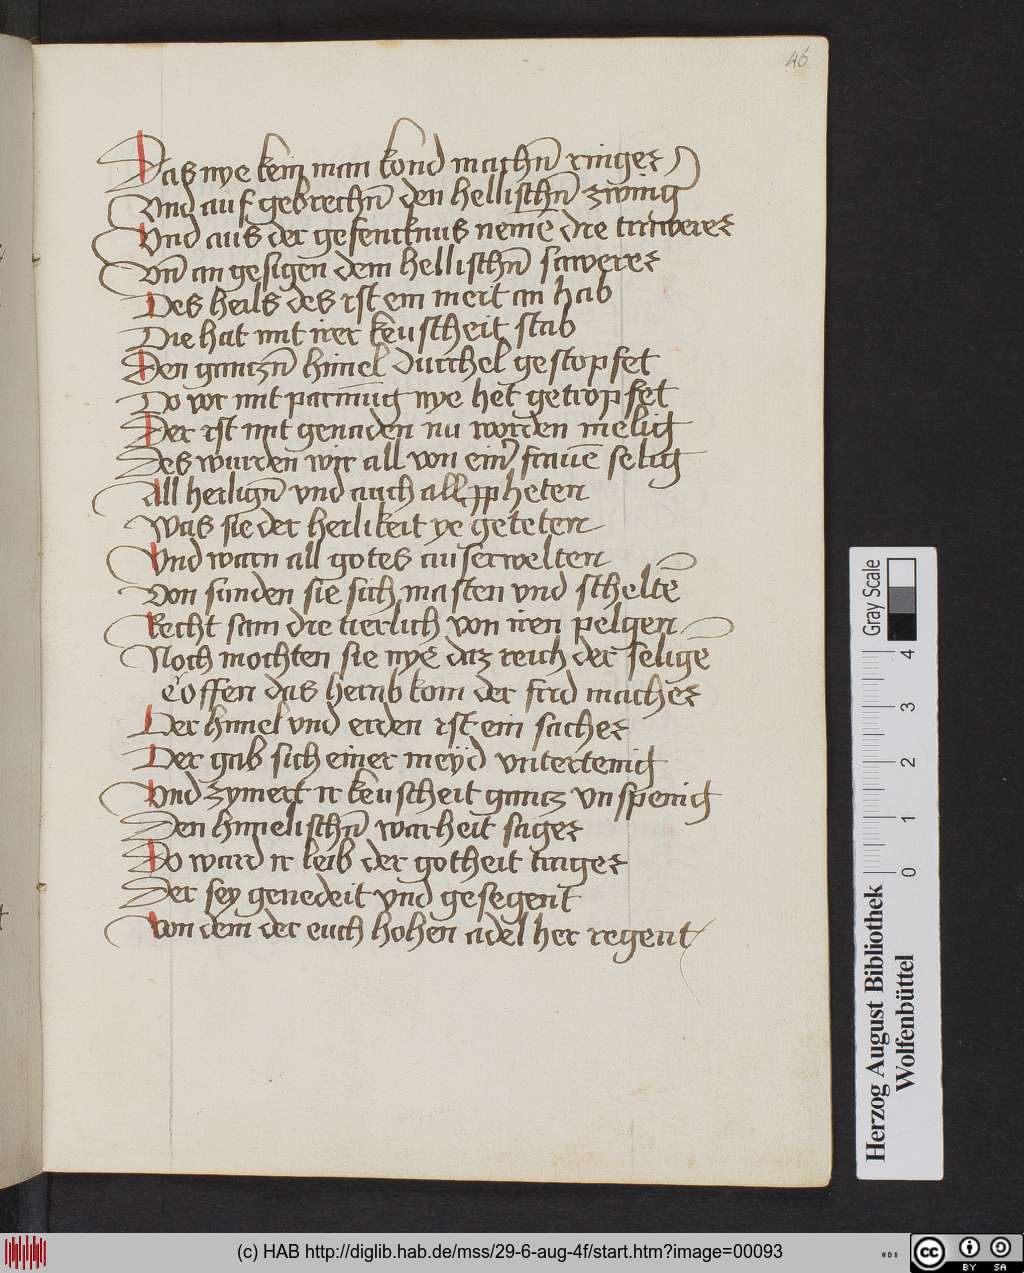 46
Das nye kein man kond machn̄ ringer
Vnd auf gebrechn̄ den hellischn̄ zwing
Vnd aus der gefencknus neme̅ die trawerer
Vn̄ an gesigen dem hellischn̄ sawerer
Des heils des ist ein meit an hab
Die hat mit irer keuscheit stab
Den ganczn̄ himel durchel gestopfet
Do vor mit parmu̅g nye het getropfet
Der ist mit genaden nu worden melig
Des wurden wir all von ein̄ fraue̅ selig
All heilign̄ vnd auch all ꝓpheten
Was sie der herlikeit ye geteten
Vnd warn all gotes auserwelten
Von sunden sie sich masten vnd schelte̅
Recht sam die tierlich von iren pelgen
Noch mochten sie nye daz reich der selige̅
offen das herab kom der frid macher
Der himel vnd erden ist ein sacher
Der gab sich einer meyd vntertenig
Vnd zymert ir keuscheit gancz vnspenig
Den himelischn̄ warheit sager
Do ward ir leib der gotheit trager
Der sey genedeit vnd gesegent
Von dem der euch hohen adel her regent
Herzog August Bibliothek
Wolfenbüttel
Gray Scale
0 1 2 3 4
(c) HAB http://diglib.hab.de/mss/29-6-aug-4f/start.htm?image=00093
WDB
cc BY SA